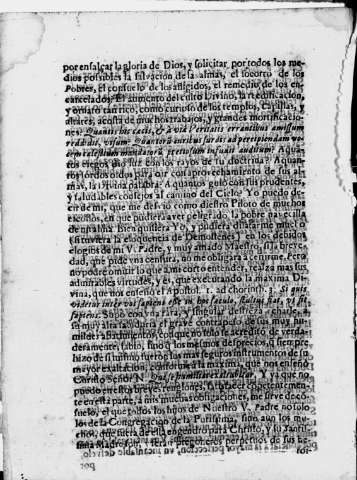 por ensalçar la gloria de Dios, y solicitar por todos los me-
dios possibles la salvacion de las almas, el socorro de los
Pobres, el consuelo de los afligidos, el remedio de los en-
carcelados, el aumento del culto Divino, la reedificacion,
y ornato tan rico, como curioso de los templos, Capillas, y
altares, acosta de muchos trabajos, y grandes mortificacio-
nes. Quantis hic cæcis, & à via veritatis errantibus amissum
reddidit, visum! Quantorū
cœlestium mundator
tos ciegos dio luz con los rayos de su doctrina? Aquan-
tos sordos oidos para oir con aprovechamiento de sus al-
mas, la Divina palabra? A quantos guiò con sus prudentes,
y saludables consejos al camino del Cielo? Yo puedo de-
cir de mi, que me desviò como diestro Piloto de muchos
escollos, en que pudiera aver peligrado la pobre navecilla
de mi alma bien quisiera Yo, y pudiera dilatarme mucho
(si tuviera la eloquencia de Demosthenes) en los debidos
elogios de mi V. Padre, y muy amado Maestro, si la breve-
dad, que pide vna censura, no me obligara à ceñirme. Pero
no podrè omitir lo que à mi corto entender, realza mas sus
admirables virtudes, y es, que executando la maxima Di-
vina, que nos enseñò el Apostol. 1. ad chorinth. 3. Si quis
videtur inter vos sapiens esse in hoc sæculo, stultus fiat, vt sit
sapiens. Supo con vna rara, y singular destreza
su muy alta sabiduria el grave contrapeso de sus muy hu-
mildes abatimientos, con que no solo se acreditò de verda-
deramente, sabio, sino que los mismos desprecios, que siempre
hizo de si mismo fueron los mas seguros instrumentos de su
mayor exaltacion, conforme à la maxima, que nos enseñò
Christo Señor N. Y ya que no
puedo en estos breves renglones, satisfacer competentemen-
te en esta parte, à mis muchas obligaciones, me sirve de co-
suelo, el que todos los hijos de Nuestro V. Padre no solo
los de la Congregacion de la Purissima, sino aun los mu-
chos, que fuera de ella engendrò para Christo, y su Santis-
sima Madre son, y seràn pregoneros perpetuos de sus he-